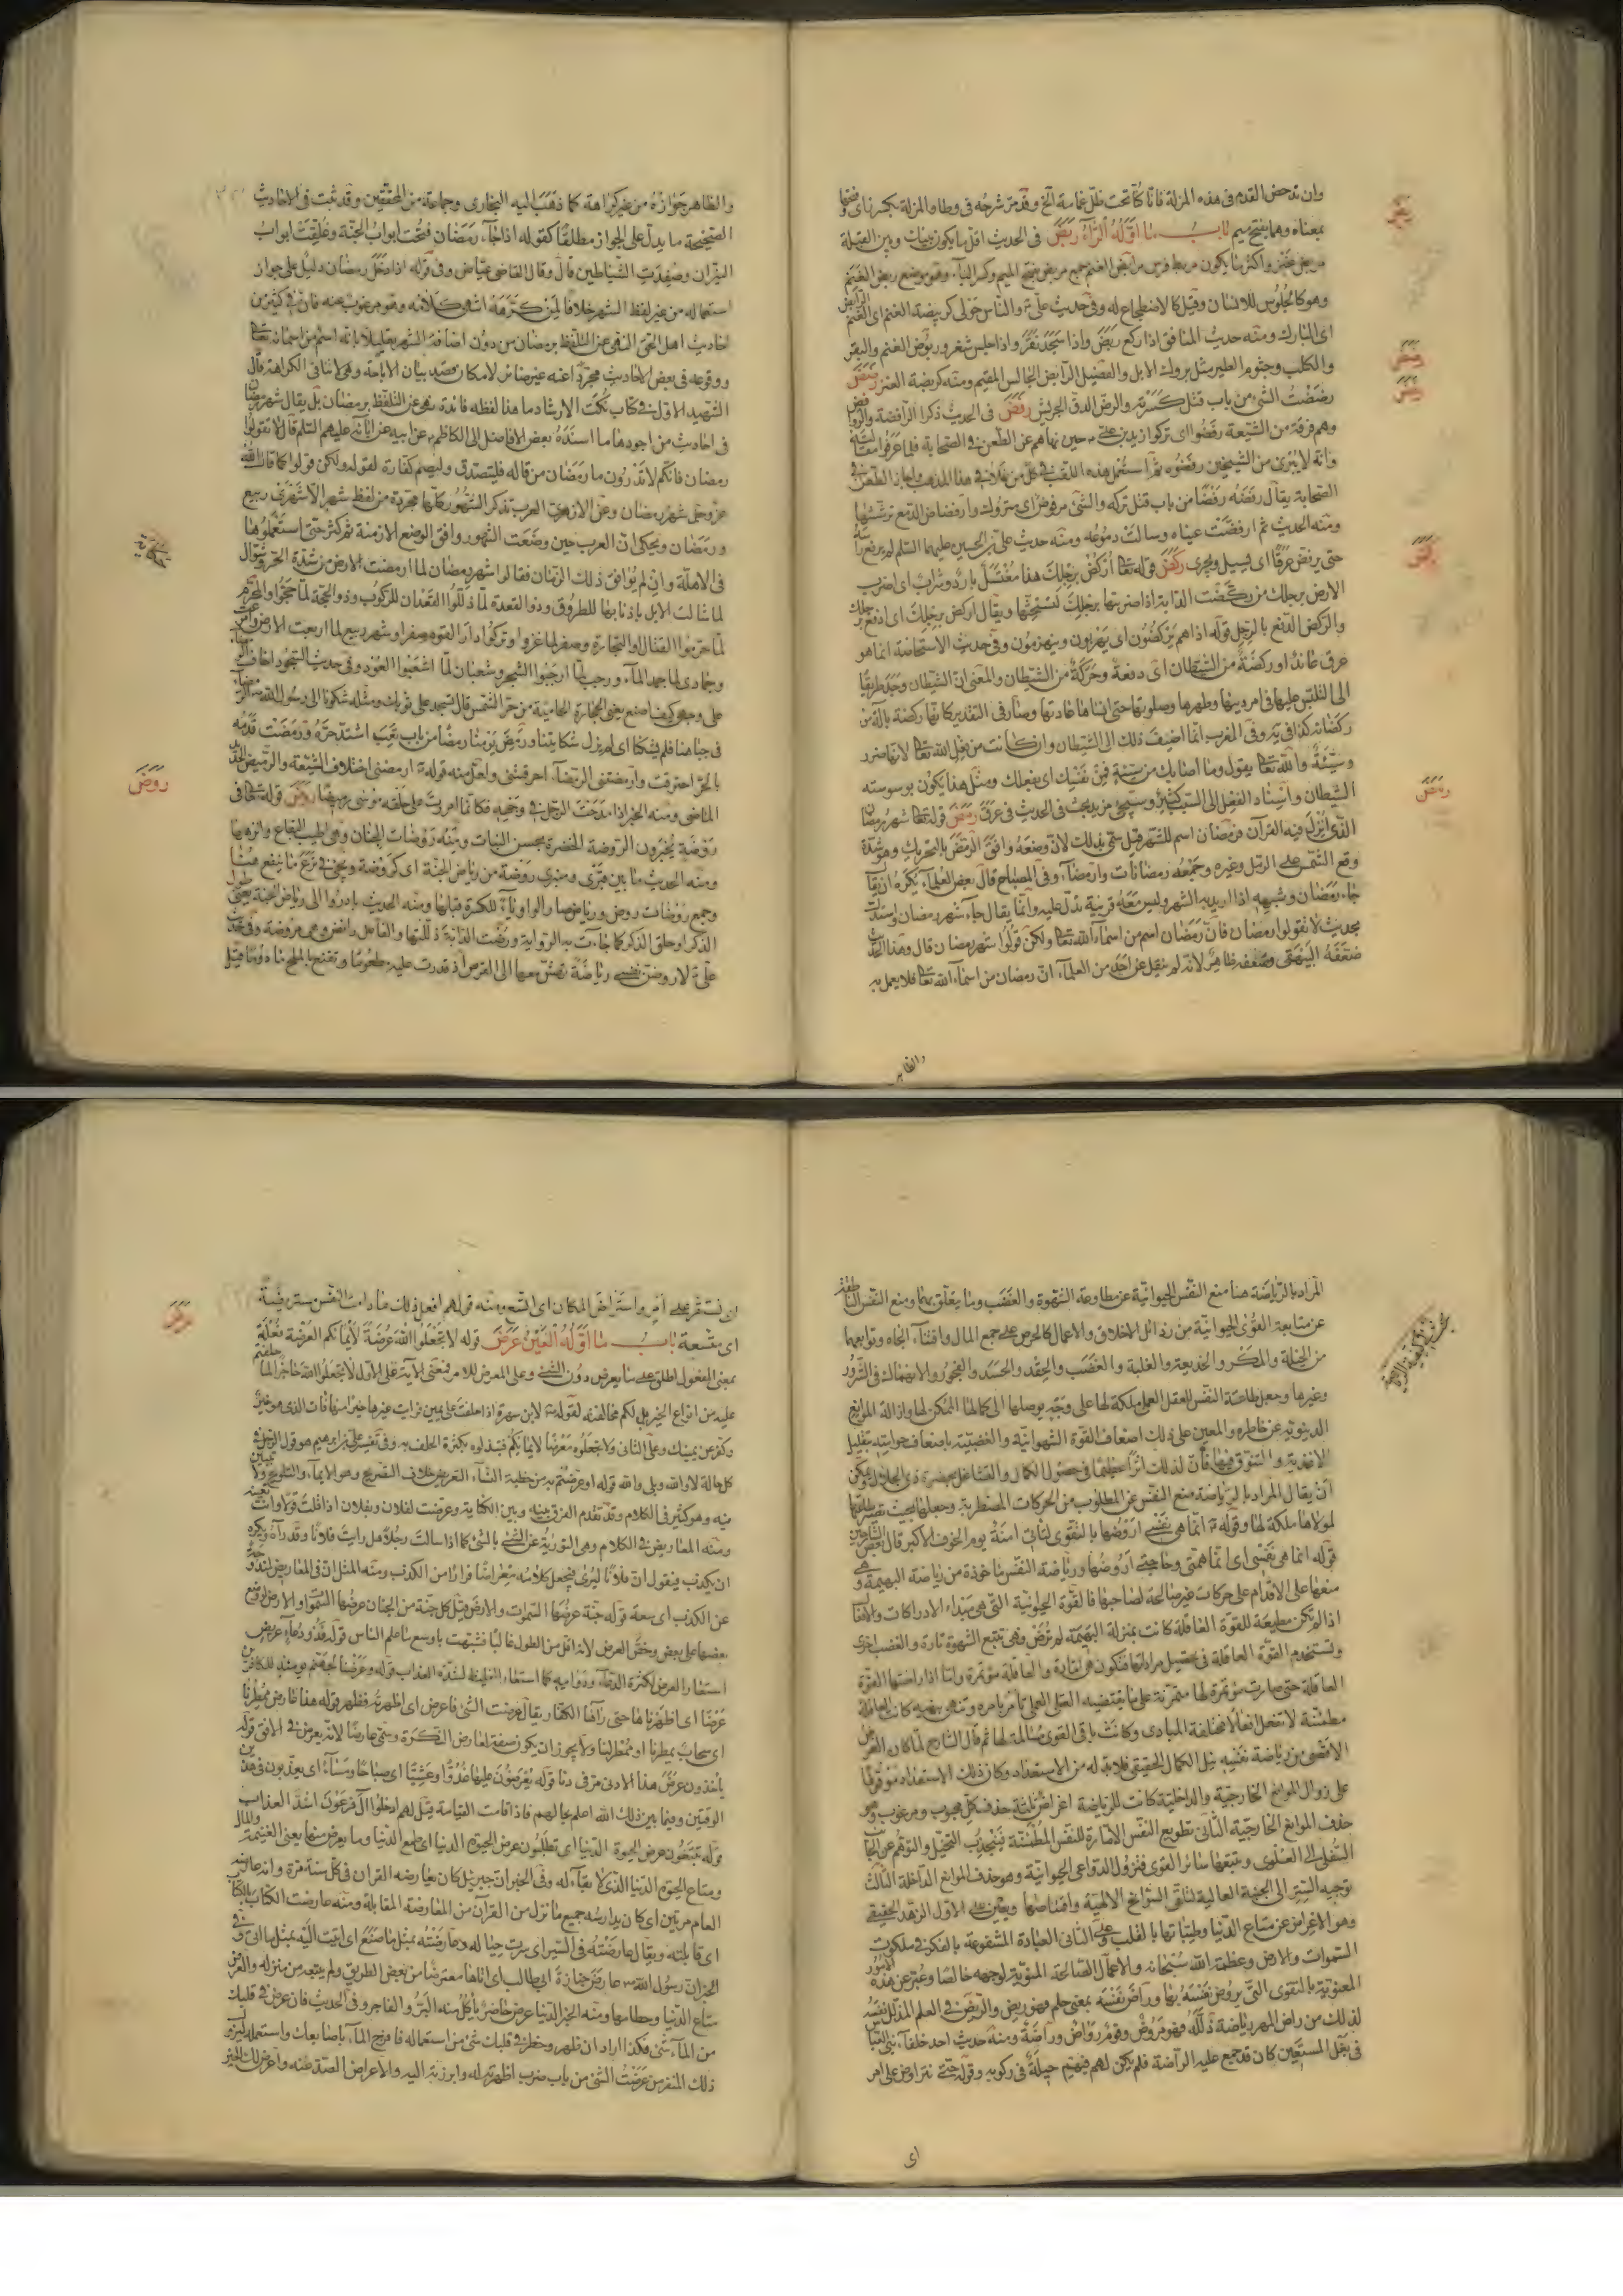 وان تدحض القدم فى هذه المزلة فانا كنا تحت ظل غمامة الخ وقد مر شرحه فى وطا والمزلة بكسر زاى وفتحها
بمعناه وهما بفتح ميم باب ما اوله الراء ربض فى الحديث اقل ما يكون بينك وبين القبلة
مربض عنز واكثر ما يكون مربط فرس مرابض الغنم جمع مربض بفتح الميم وكسر الباء وهو موضع ربض الغنم
وهو كالجلوس للانسان وقيل كالاضطجاع له وفى حديث على والناس حولى كربيضة الغنم اى الغنم الرابض
اى البارك ومنه حديث المنافق اذا ركع ربض واذا سجد نقر واذا جلس شغر وربوض الغنم والبقر
والكلب وجثوم الطير مثل بروك الابل والفصيل الرابض الجالس المقيم ومنه كربيضة العنز رضض
رضضت الشئ من باب قتل كسرته والرض الدق الجريش رفض فى الحديث ذكر الرافضة والروافض
وهم فرقة من الشيعة رفضوا اى تركوا زيد بن على حين نهاهم عن الطعن فى الصحابة فلما عرفوا مقالته
وانه لا يبرئ من الشيخين رفضوه ثم استعمل هذا اللقب فى كل من غلا فى هذا المذهب واجاز الطعن فى
الصحابة يقال رفضه رفضا من باب قتل تركه والشئ مرفوض اى متروك وارفضاض الدمع ترششها
ومنه الحديث ثم ارفضت عيناه وسالت دموعه ومنه حديث على بن الحسين عليهما السلام لم يرفع راسه
حتى يرفض عرقا اى يسيل ويجرى ركض قوله تعالى اركض برجلك هذا مغتسل بارد وشراب اى اضرب
الارض برجلك من ركضت الدابة اذا ضربتها برجلك لتستحثها ويقال اركض برجلك اى ادفع برجلك
والركض الدفع بالرجل قوله اذا هم يركضون اى يهربون وينهزمون وفى حديث الاستحاضة انما هو
عرق عاند او ركضة من الشيطان اى دفعة وحركة من الشيطان والمعنى ان الشيطان وجد طريقا
الى التلبس عليها فى امر دينها وطهرها وصلوتها حتى انساها عادتها وصار فى التقدير كانها ركضة بآلة من
ركضاته كذا فى يه وفى المغرب انما اضيف ذلك الى الشيطان وان كانت من قبل الله تعالى لانها ضرر
وسيئة والله تعالى يقول وما اصابك من سيئة فمن نفسك اى بفعلك ومثل هذا يكون بوسوسته
الشيطان واسناد الفعل الى السبب كثير وسيجئ مزيد بحث فى الحديث فى عرق رمض قوله تعالى شهر رمضان
الذى انزل فيه القرآن فرمضان اسم للشهر قيل سمى بذلك لان وضعه وافق الرمض بالتحريك وهو شدة
وقع الشمس على الرمل وغيره وجمعه رمضانات وارمضاء وفى المصباح قال بعض العلماء يكره ان يقال
جاء رمضان وشبهه اذا اريد به الشهر وليس معه قرينة تدل عليه وانما يقال جاء شهر رمضان واستدل
بحديث لا تقولوا رمضان فان رمضان اسم من اسماء الله تعالى ولكن قولوا شهر رمضان قال وهذا الحديث
ضعفه البيهقى وضعفه ظاهر لانه لم ينقل عن احد من العلماء ان رمضان من اسماء الله تعالى فلا يعمل به
والظاهر
والظاهر جوازه من غير كراهة كما ذهب اليه البخارى وجماعة من المحققين وقد ثبت فى الاحاديث
الصحيحة ما يدل على الجواز مطلقا كقوله اذا جاء رمضان فتحت ابواب الجنة وغلقت ابواب
النيران وصفدت الشياطين قال وقال القاضى عياض وفى قوله اذا دخل رمضان دليل على جواز
استعماله من غير لفظ الشهر خلافا لمن كرهه انتهى كلامه وهو مرغوب عنه فان فى كثير من
احاديث اهل الحق النهى عن التلفظ برمضان من دون اضافة الشهر تعليلا بانه اسم من اسمائه تعالى
ووقوعه فى بعض الاحاديث مجردا عنه غير ضائر لامكان قصد بيان الاباحة وهى لا تنافى الكراهة قال
الشهيد الاول فى كتاب نكت الارشاد ما هذا لفظه فائدة نهى عن التلفظ برمضان بل يقال شهر رمضان
فى احاديث من اجودها ما اسنده بعض الافاضل الى الكاظم عن ابيه عن آبائه عليهم السلام قال لا تقولوا
رمضان فانكم لا تدرون ما رمضان من قاله فليتصدق وليصم كفارة لقوله ولكن قولوا كما قال الله
عز وجل شهر رمضان وعن الازهرى العرب تذكر الشهور كلها مجردة من لفظ شهر الا شهرى ربيع
ورمضان ويحكى ان العرب حين وضعت الشهور وافق الوضع الازمنة ثم كثر حتى استعملوها
فى الاهلة وان لم يوافق ذلك الزمان فقالوا شهر رمضان لما ارمضت الارض من شدة الحر وشوال
لما شالت الابل باذنابها للطروق وذو القعدة لما ذللوا القعدان للركوب وذو الحجة لما حجوا والمحرم
لما حرموا القتال او التجارة وصفر لما غزوا وتركوا دار القوم صفرا وشهر ربيع لما اربعت الارض وامرعت
وجمادى لما جمد الماء ورجب لما ارجبوا الشجر وشعبان لما اشعبوا العود وفى حديث السجود اخاف الرمضاء
على وجهى كيف اصنع يعنى الحجارة الحامية من حر الشمس قال تسجد على ثوبك ومثله شكونا الى رسول الله الرمضاء
فى جباهنا فلم يشكنا اى لم يزل شكايتنا ورمض يومنا رمضا من باب تعب اشتد حره ورمضت قدمه
بالحر احترقت وارمضتنى الرمضاء احرقتنى ولعل منه قوله ارمضنى اختلاف الشيعة والرميض الحديد
الماضى ومنه الخبر اذا مدحت الرجل فى وجهه فكانما امررت على حلقه موسى رميضا روض قوله تعالى فى
روضة يحبرون الروضة الخضرة بحسن النبات ومنه روضات الجنان وهى اطيب البقاع وانزهها
ومنه الحديث ما بين قبرى ومنبرى روضة من رياض الجنة اى كروضة ويجئ فى ترع ما ينفع هيهنا
وجمع روضات روض ورياض صار الواو ياء للكسرة قبلها ومنه الحديث بادروا الى رياض الجنة يعنى
الذكر او حلق الذكر كما جاءت به الرواية ورضت الدابة ذللتها والفاعل رائض وهى مروضة وفى حديث
على لاروضن نفسى رياضة تهش معها الى القرص اذا قدرت عليه مطعوما وتقنع بالملح مأدوما قيل
المراد بالرياضة هنا منع النفس الحيوانية عن مطاوعة الشهوة والغضب وما يتعلق بهما ومنع النفس الناطقة
عن متابعة القوى الحيوانية من رذائل الاخلاق والاعمال كالحرص على جمع المال واقتناء الجاه وتوابعهما
من الحيلة والمكر والخديعة والغلبة والغضب والحقد والحسد والفجور والانهماك فى الشرور
وغيرها وجعل طاعة النفس للعقل العملى ملكة لها على وجه يوصلها الى كمالها الممكن لها وازالة الموانع
الدنيوية عن خاطره والمعين على ذلك اضعاف القوة الشهوانية والغضبية باضعاف حواسه بتقليل
الاغذية والتنوق فيها فان لذلك اثرا عظيما فى حصول الكمال والتشاغل بحضرة ذى الجلال ويمكن
ان يقال المراد بالرياضة منع النفس عن المطلوب من الحركات المضطربة وجعلها بحيث تصير طاعتها
لمولاها ملكة لها وقوله انما هى نفسى اروضها بالتقوى لتاتى امنة يوم الخوف الاكبر قال بعض الشارحين
قوله انما هى نفسى اى انما همتى وحاجتى اروضها ورياضة النفس ماخوذة من رياضة البهيمة وهى
منعها على الاقدام على حركات غير صالحة لصاحبها فالقوة الحيوانية التى هى مبداء الادراكات والافعال
اذا لم تكن مطيعة للقوة العاقلة كانت بمنزلة البهيمة لم ترض وهى تتبع الشهوة تارة والغضب اخرى
وتستخدم القوة العاقلة فى تحصيل مراداتها فتكون هى امارة والعاقلة مؤتمرة واما اذا راضتها القوة
العاقلة حتى صارت مؤتمرة لها متمرنة على ما يقتضيه العقل العملى تاتمر بامره وتنتهى بنهيه كانت العاقلة
مطمئنة لا تفعل افعالا مختلفة المبادى وكانت باقى القوى سالمة لها ثم قال الشارح لما كان الغرض
الاقصى من رياضة نفسه نيل الكمال الحقيقى فلا بد له من الاستعداد وكان ذلك الاستعداد موقوفا
على زوال الموانع الخارجية والداخلية كانت للرياضة اغراض ثلثة حذف كل محبوب ومرغوب وهو
حذف الموانع الخارجية الثانى تطويع النفس الامارة للنفس المطمئنة فينجذب التخيل والتوهم عن الجانب
السفلى الى العلوى ويتبعها سائر القوى فتزول الدواعى الحيوانية وهو حذف الموانع الداخلة الثالث
توجيه السر الى الجنبة العالية لتلقى السوانح الالهية واقتناصها ويعين على الاول الزهد الحقيقى
وهو الاعراض عن متاع الدنيا وطيباتها بالقلب وعلى الثانى العبادة المشفوعة بالفكر فى ملكوت
السموات والارض وعظمة الله سبحانه والاعمال الصالحة المنوية لوجهه خالصا وعبر عن هذه الامور
المعنوية بالتقوى التى يروض نفسه بها وراض نفسه بمعنى حلم فهو ريض والريض فى العلم المذلل نفسه
لذلك من راض المهر رياضة ذلله فهو مروض وقوم رواض وراضة ومنه حديث احد خلفاء بنى العباس
فى بغل المستعين كان قد جمع عليه الراضة فلم يكن لهم فيهم حيلة فى ركوبه وقوله حتى تتراوض على امر
اى
اى تستقر على امر واستراض المكان اى اتسع ومنه قولهم افعل ذلك ما دامت النفس مستريضة
اى متسعة باب ما اوله العين عرض قوله لا تجعلوا الله عرضة لايمانكم العرضة فعلة
بمعنى المفعول اطلق على ما يعرض دون الشئ وعلى المعرض للامر فمعنى الآية على الاول لا تجعلوا الله حاجزا لما حلفتم
عليه من انواع الخير بل لكم مخالفته لقوله لابن سمرة اذا حلفت على يمين فرايت غيرها خيرا منها فات الذى هو خير
وكفر عن يمينك وعلى الثانى ولا تجعلوه معرضا لايمانكم فتبذلوه بكثرة الحلف به وفى تفسير على بن ابرهيم هو قول الرجل فى
كل حالة لا والله وبلى والله قوله او عرضتم به من خطبة النساء التعريض خلاف التصريح وهو الايماء والتلويح ولا تبيين
فيه وهو كثير فى الكلام وقد تقدم الفرق بينه وبين الكناية وعرضت لفلان وبفلان اذا قلت قولا وانت تعنيه
ومنه المعاريض فى الكلام وهى التورية عن الشئ بالشئ كما اذا سالت رجلا هل رايت فلانا وقد رآه ويكره
ان يكذب فيقول ان فلانا ليرى فيجعل كلامه معراضا فرارا من الكذب ومنه المثل ان فى المعاريض لمندوحة
عن الكذب اى سعة قوله جنة عرضها السموات والارض قيل كل جنة من الجنان عرضها السموات والارض لو وضع
بعضها على بعض وخص العرض لانه اقل من الطول غالبا فشبهت باوسع ما علم الناس قوله فذو دعاء عريض
استعار العرض لكثرة الدعاء ودوامه كما استعار الغليظ لشدة العذاب قوله وعرضنا جهنم يومئذ للكافرين
عرضا اى اظهرناها حتى رآها الكفار يقال عرضت الشئ فاعرض اى اظهرته فظهر قوله هذا عارض ممطرنا
اى سحاب يمطرنا او ممطر لنا ولا يجوز ان يكون صفة لعارض النكرة وسمى عارضا لانه يعرض فى الافق قوله
ياخذون عرض هذا الادنى مر فى دنا قوله يعرضون عليها غدوا وعشيا اى صباحا ومساء اى يعذبون فى هذين
الوقتين وفيما بين ذلك الله اعلم بحالهم فاذا قامت القيامة قيل لهم ادخلوا آل فرعون اشد العذاب
قوله تبتغون عرض الحيوة الدنيا اى تطلبون عرض الحيوة الدنيا اى طمع الدنيا وما يعرض منها يعنى الغنيمة والمال
ومتاع الحيوة الدنيا الذى لا بقاء له وفى الخبر ان جبرئيل كان يعارضه القران فى كل سنة مرة وانه عارضه
العام مرتين اى كان يدارسه جميع ما نزل من القرآن من المعارضة المقابلة ومنه عارضت الكتاب بالكتاب
اى قابلته ويقال عارضته فى السير اى سرت حياله وعارضته بمثل ما صنع اى اتيت اليه بمثل ما اتى وفى
الخبر ان رسول الله عارض جنازة ابى طالب اى اتاها معترضا من بعض الطريق ولم يتبعه من منزله والعرض
متاع الدنيا وحطامها ومنه الخبر الدنيا عرض حاضر ياكل منه البر والفاجر وفى الحديث فان عرض فى قلبك
من الماء شئ فكذا اراد ان ظهر وخطر فى قلبك شئ من استعماله فافرج الماء باصابعك واستعمله ليزول
ذلك المنفر من عرضت الشئ من باب ضرب اظهرته له وابرزته اليه والاعراض الصد عنه واعرض لك الخير
ربض
رضض
رفض
ركض
رمض
روض
عرض